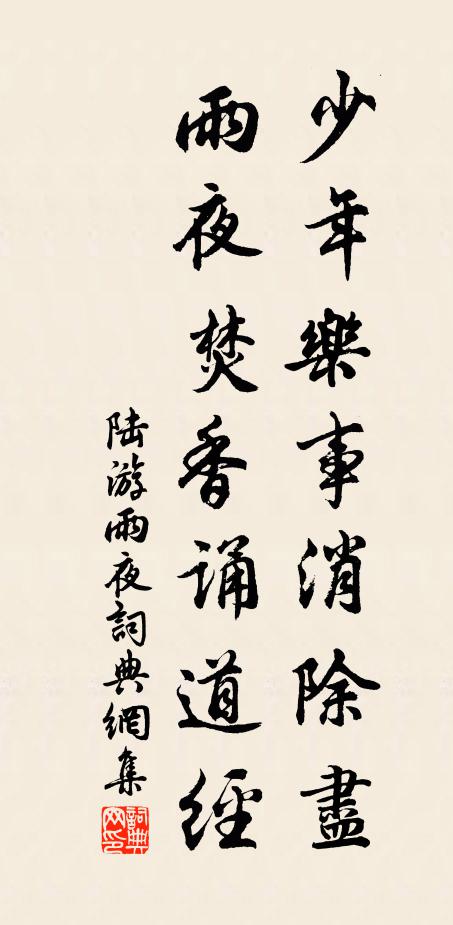 少年樂事消除盡
雨夜焚香誦道經
陆游雨夜詞典網集
詞典網印